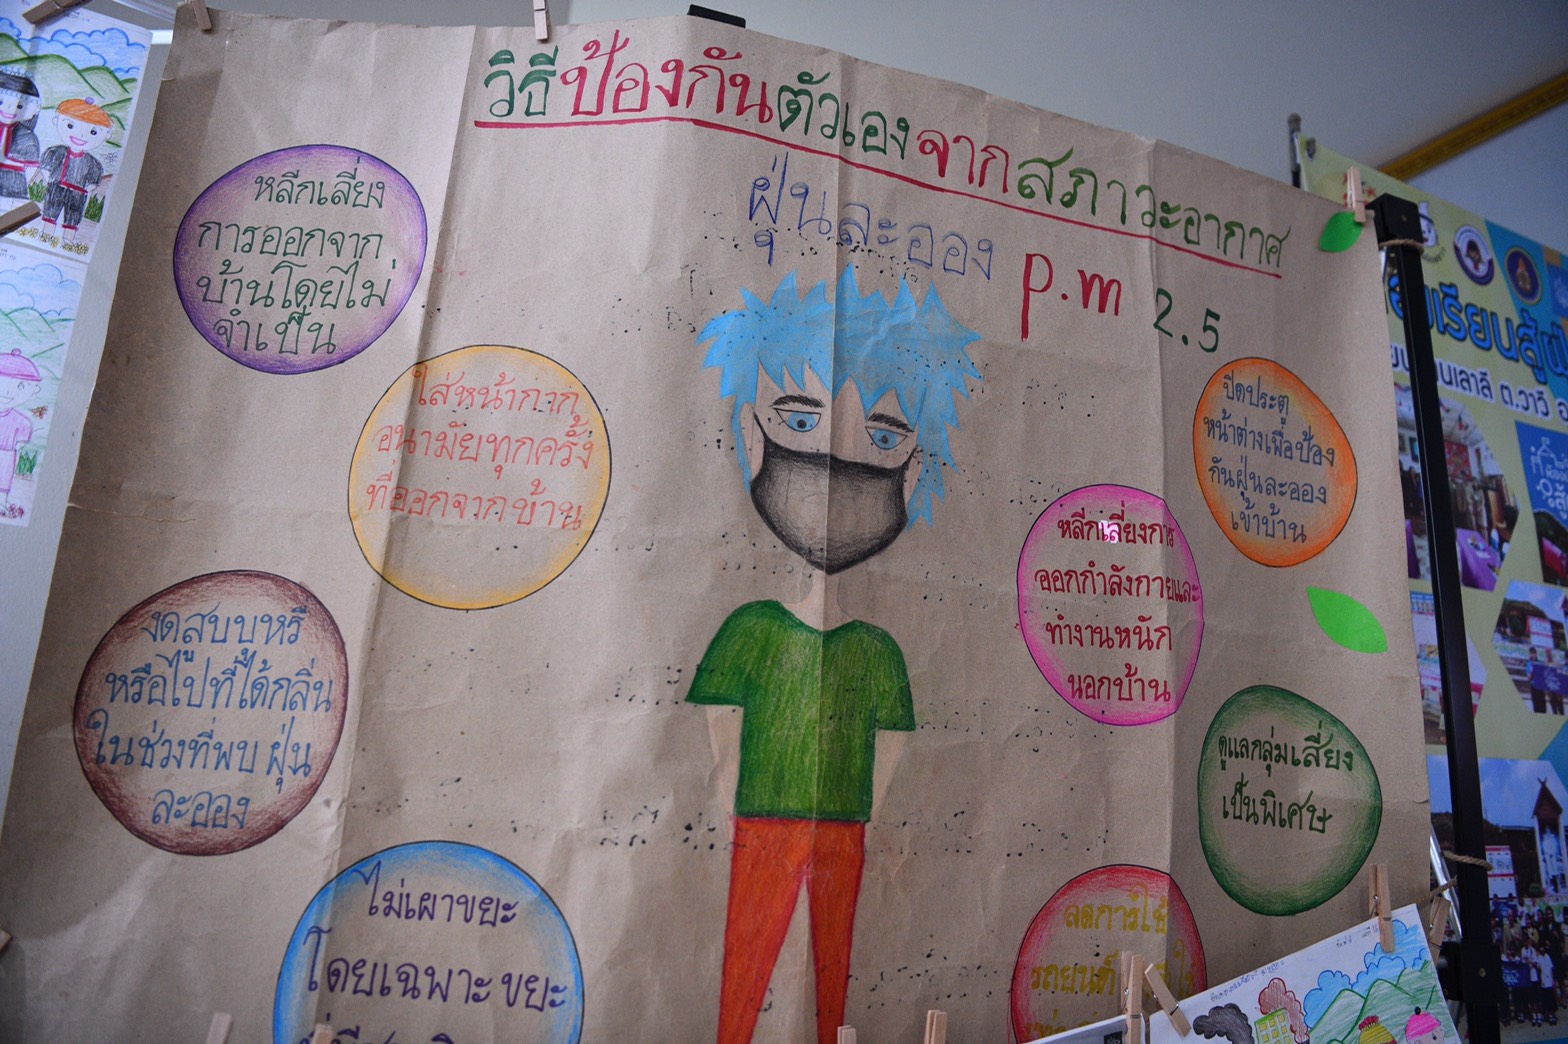 วิธีป้องกันตัวเองจากสภาวะอากาศ
ฝุ่นละออง p.m 2.5
หลีกเลี่ยง
การออกจาก
บ้านโดยไม่
จำเป็น
ใส่หน้ากาก
อนามัยทุกครั้ง
ที่ออกจากบ้าน
งดสูบบุหรี่
หรือไปที่ได้กลิ่น
ในช่วงที่พบ ฝุ่น
ละออง
ไม่เผาขยะ
โดยเฉพาะขยะ
ปิดประตู
หน้าต่างเพื่อป้อง
กันฝุ่นละออง
เข้าบ้าน
หลีกเลี่ยงการ
ออกกำลังกายและ
ทำงานหนัก
นอกบ้าน
ดูแลกลุ่มเสี่ยง
เป็นพิเศษ
ลดการใช้